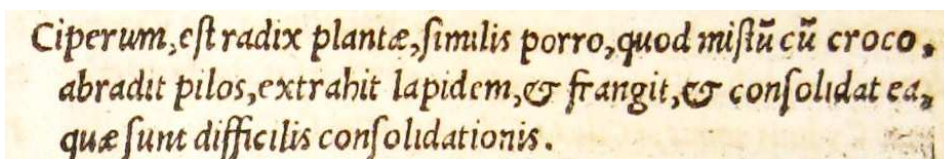 Ciperum, eſt radix plantæ, ſimilis porro, quod miſtũ cũ croco,
abradit pilos, extrahit lapidem, & frangit, & conſolidat ea,
quæ ſunt difficilis conſolidationis.